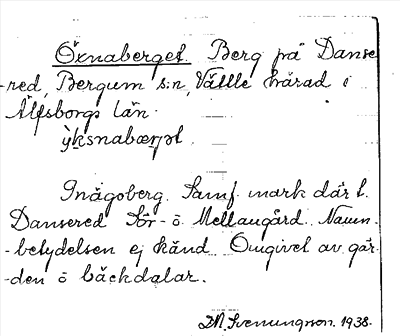 Öxnaberget. Berg på Danse
-red, Bergum s:n, Vättle härad i
Älfsborgs län.
Inägoberg. Samf. mark där t.
Dansered Sör- o Mellangård. Namn-
-betydelsen ej känd. Omgivet av går-
-den o bäckdalar.
M. Svenungson. 1938.